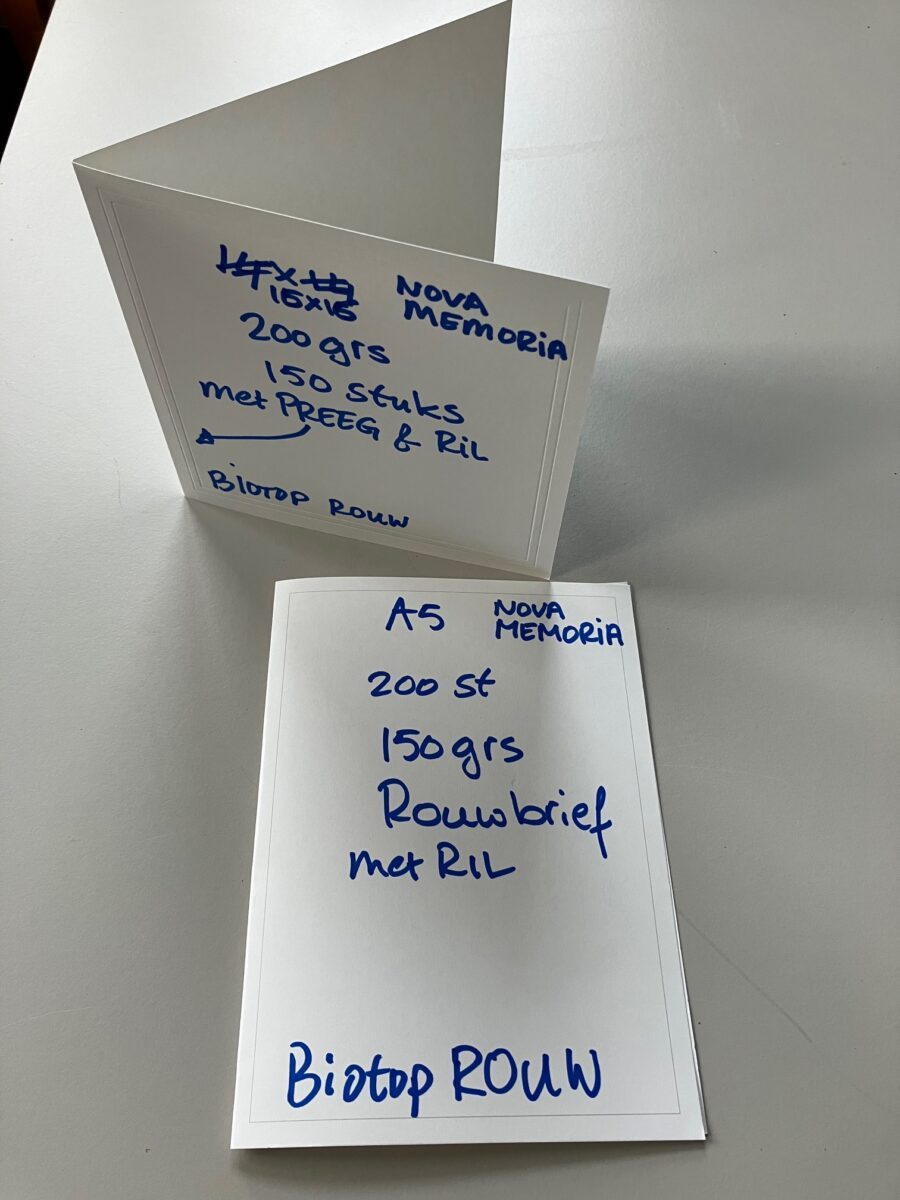 15x15 NOVA
MEMORiA
200 grs
150 stuks
met PREEG & RiL
Biotop ROUW
A5 NOVA
MEMORiA
200 st
150 grs
Rouwbrief
met RIL
Biotop ROUW